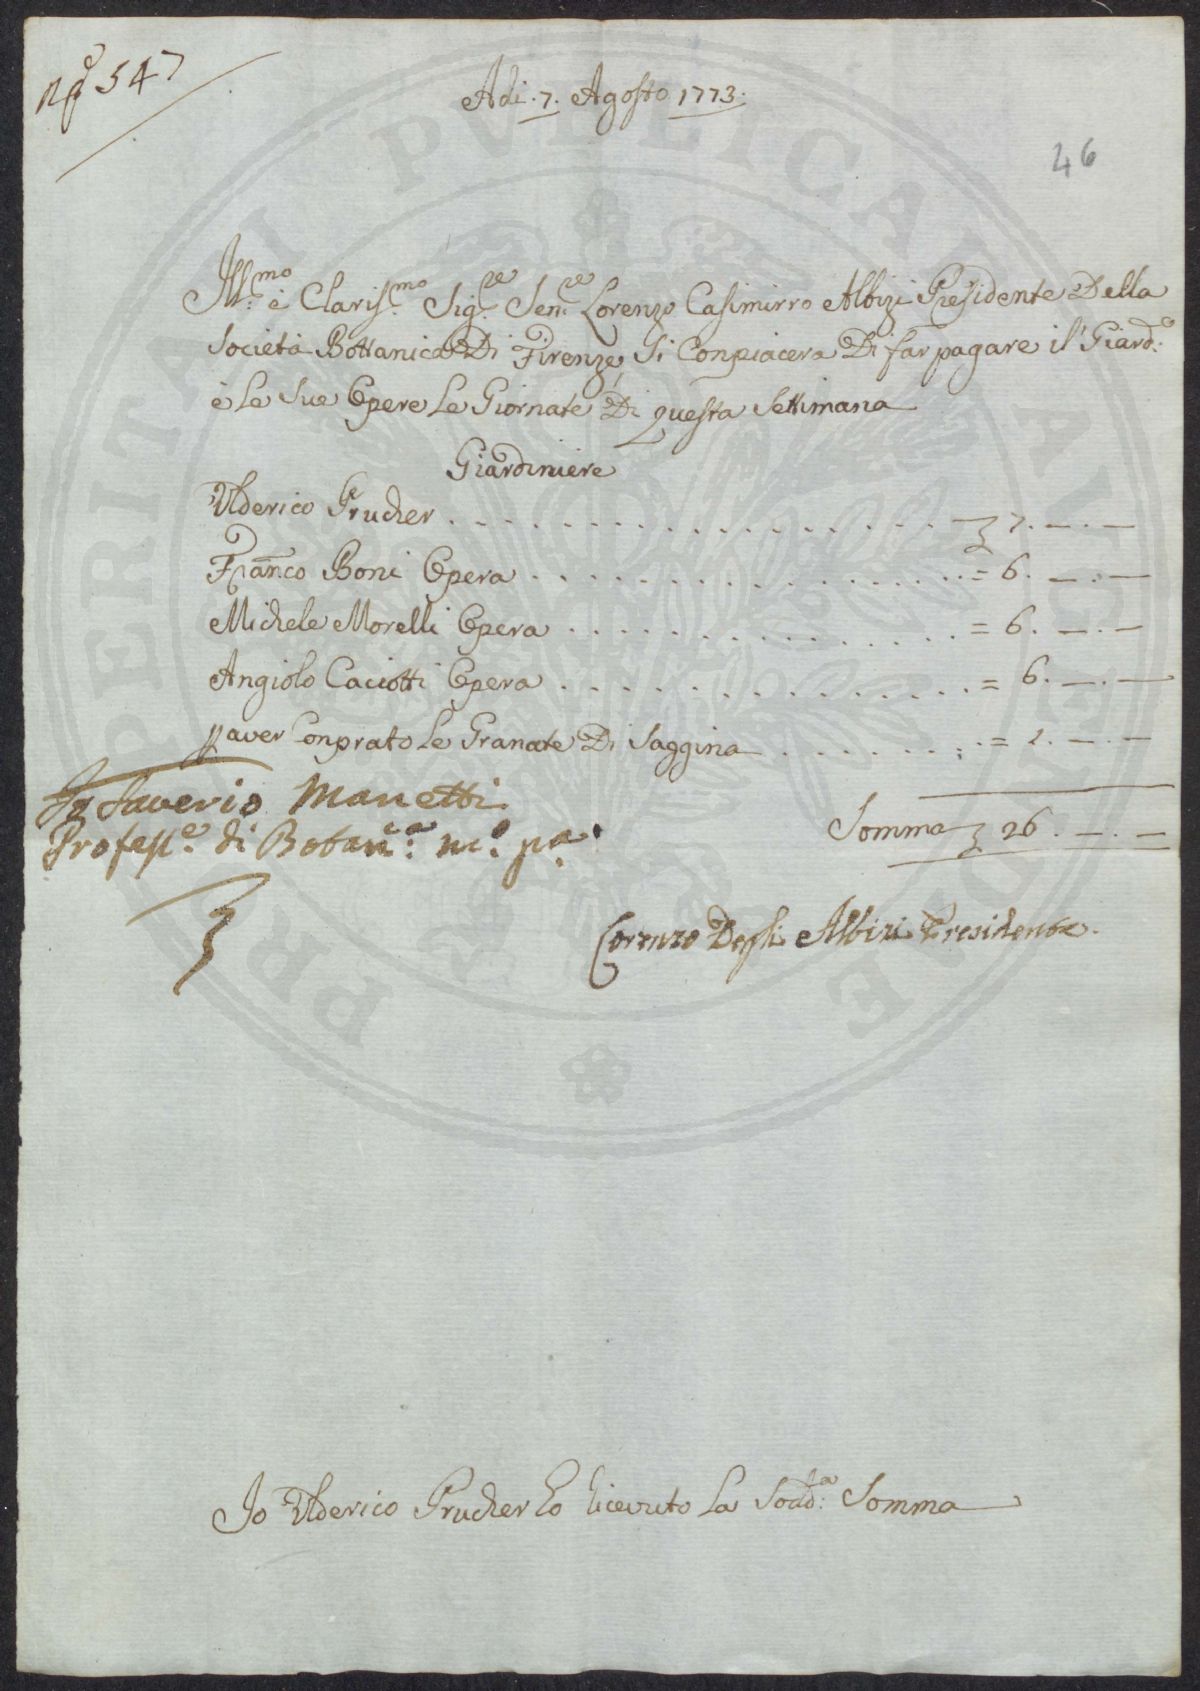 N.º 547
Adi .7. Agosto 1773.
46
Ill.mo è Clariss.mo Sig.re Sen.re Lorenzo Casimirro Albizi Presidente Della
Società Bottanica Di Firenze Si Conpiacera Di far pagare il Giard.o
è le sue Opere le Giornate Di questa Settimana
Giardiniere
Ulderico Prucher . . . . . . . . . . . . . . . . . . £ 7. — . —
Franco Boni Opera . . . . . . . . . . . . . . . . = 6. — . —
Michele Morelli Opera . . . . . . . . . . . . . . = 6. — . —
Angiolo Caciotti Opera . . . . . . . . . . . . . . = 6. — . —
p aver Conprato le Granate Di Saggina . . . . . . . = 1. — . —
Saverio Manetti
Profess.e di Botan.ca m.o pa
Somma £ 26 . — . —
Lorenzo Degli Albizi Presidente.
Io Ulderico Prucher ho ricevuto la Sodd.a Somma
PROSPERITATI PVBLICAE AVGENDAE